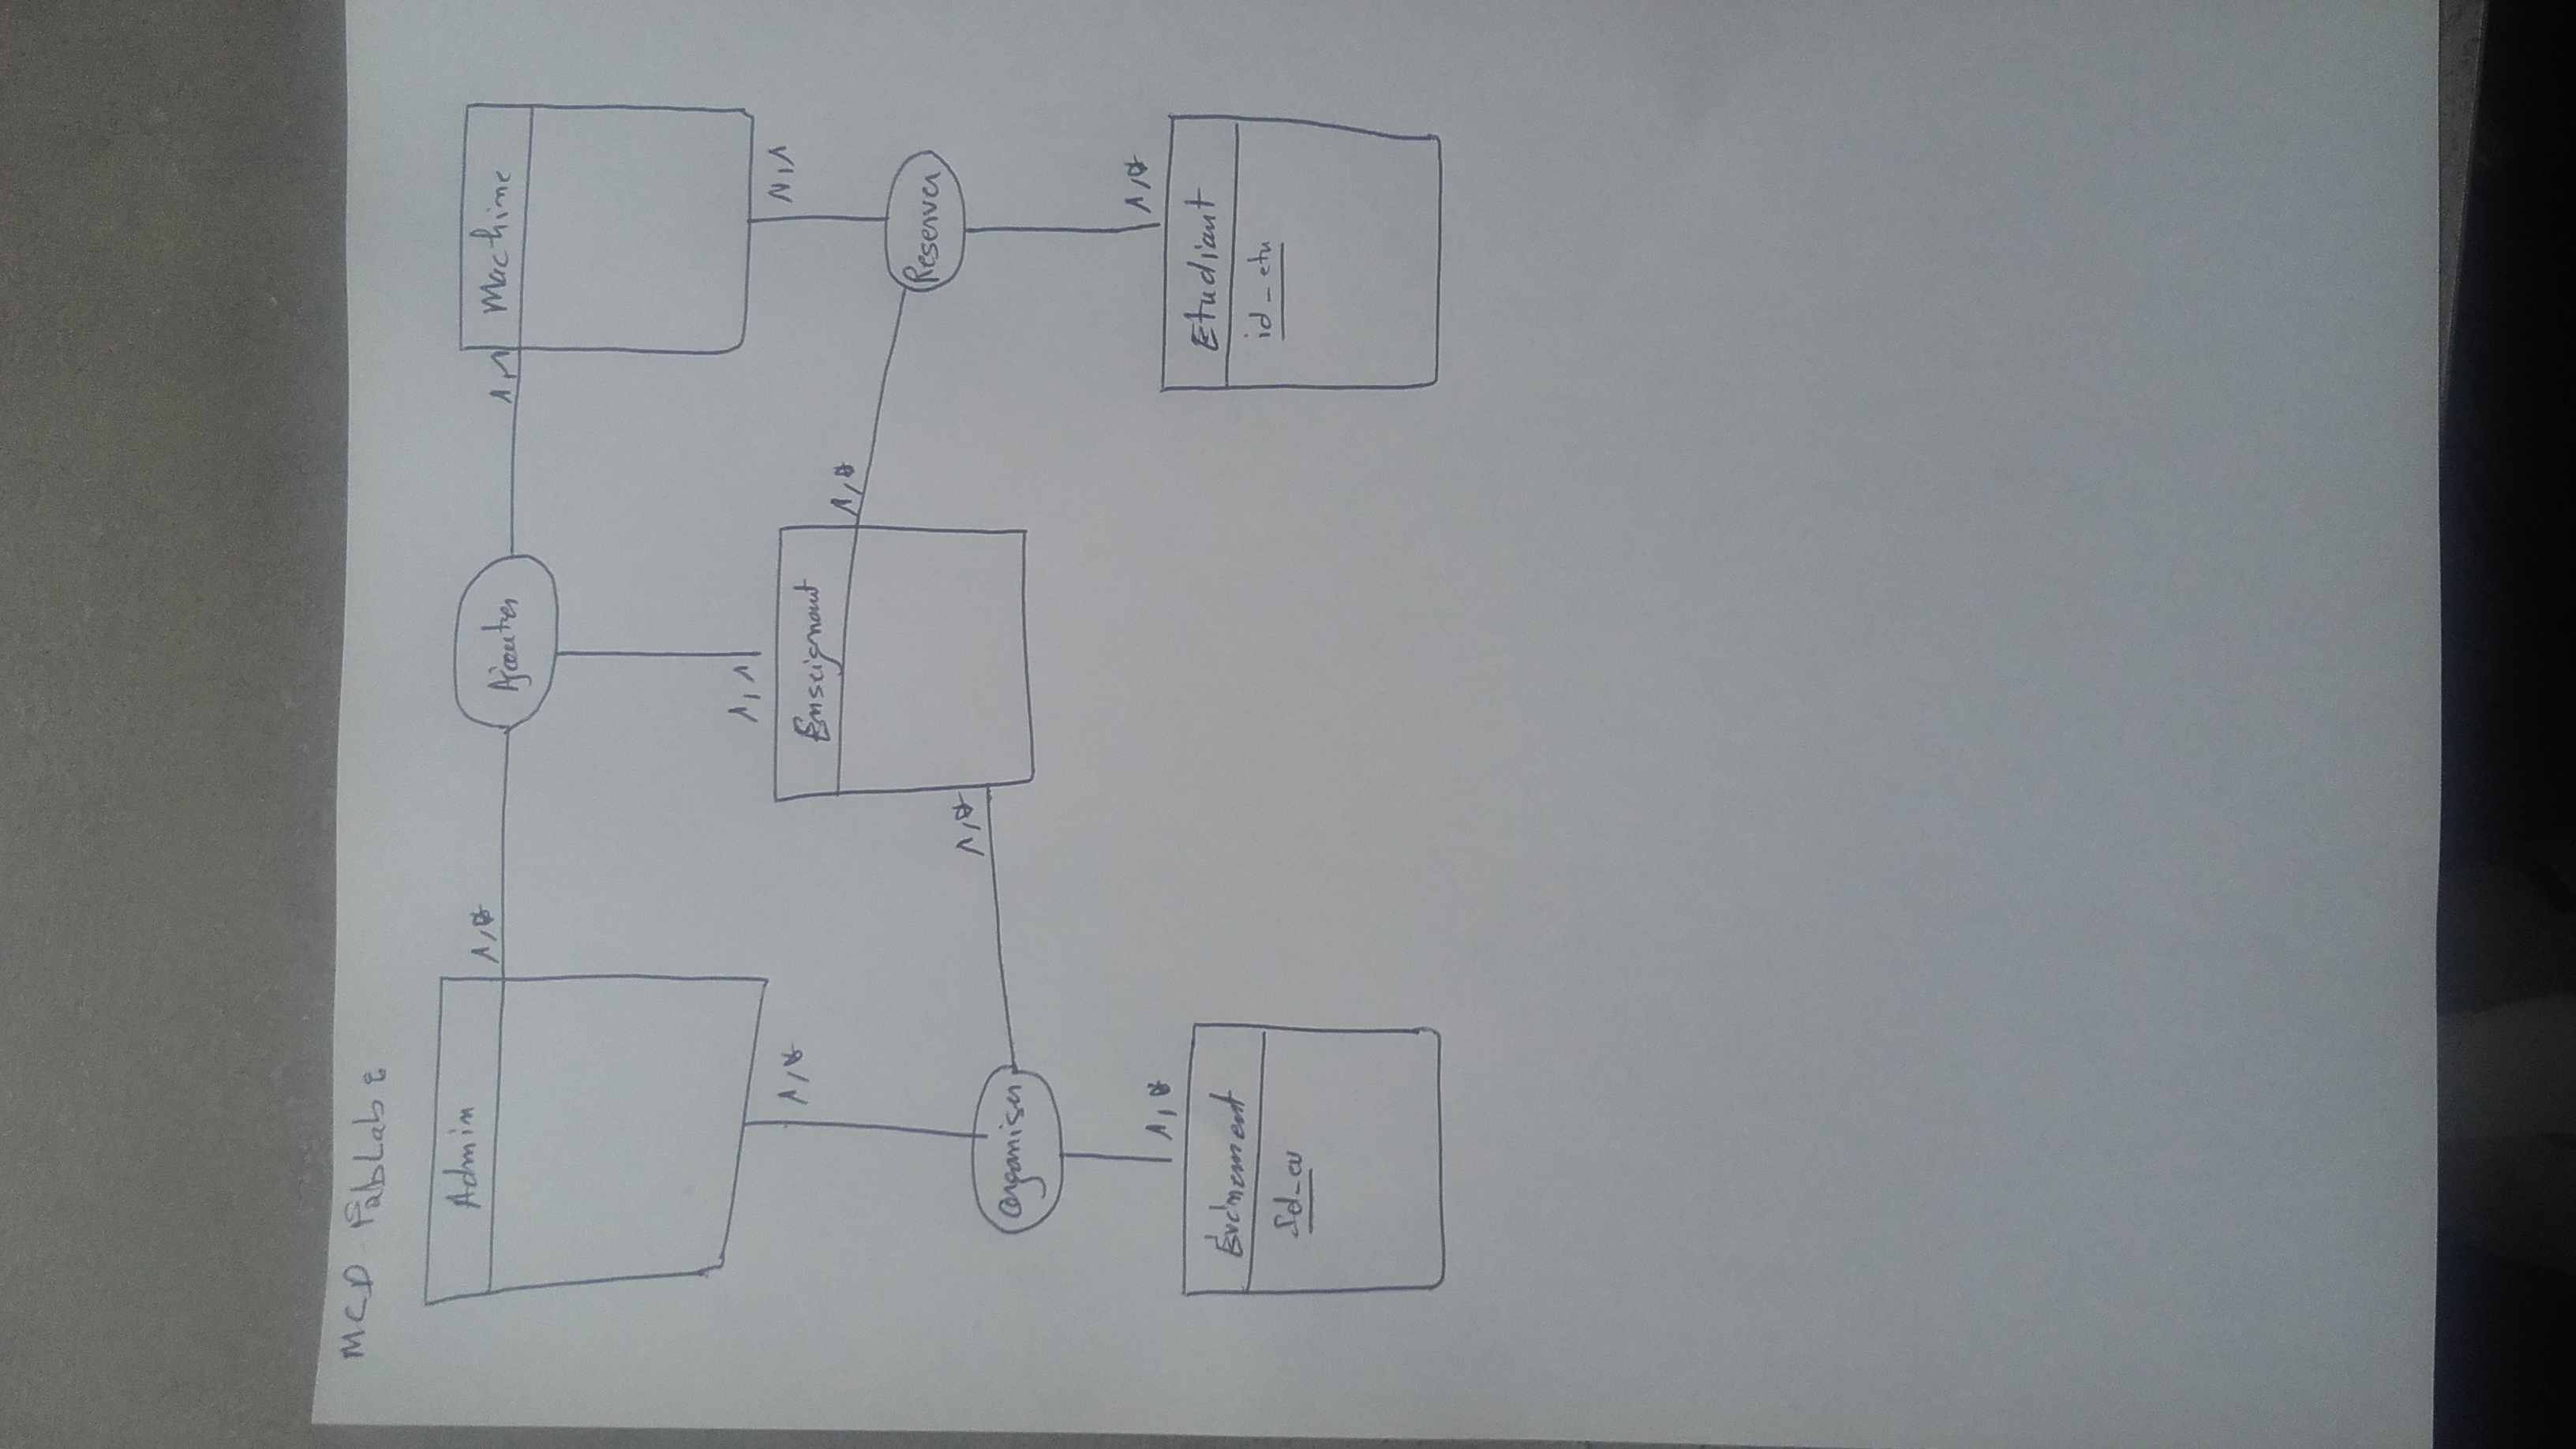 MCD FabLab :
Admin
1,*
Ajouter
1,1
Machine
1,*
1,1
Enseignant
1,*
N,1
Reserver
1,*
Organiser
1,*
1,*
Evénement
Id_ev
Etudiant
id_etu